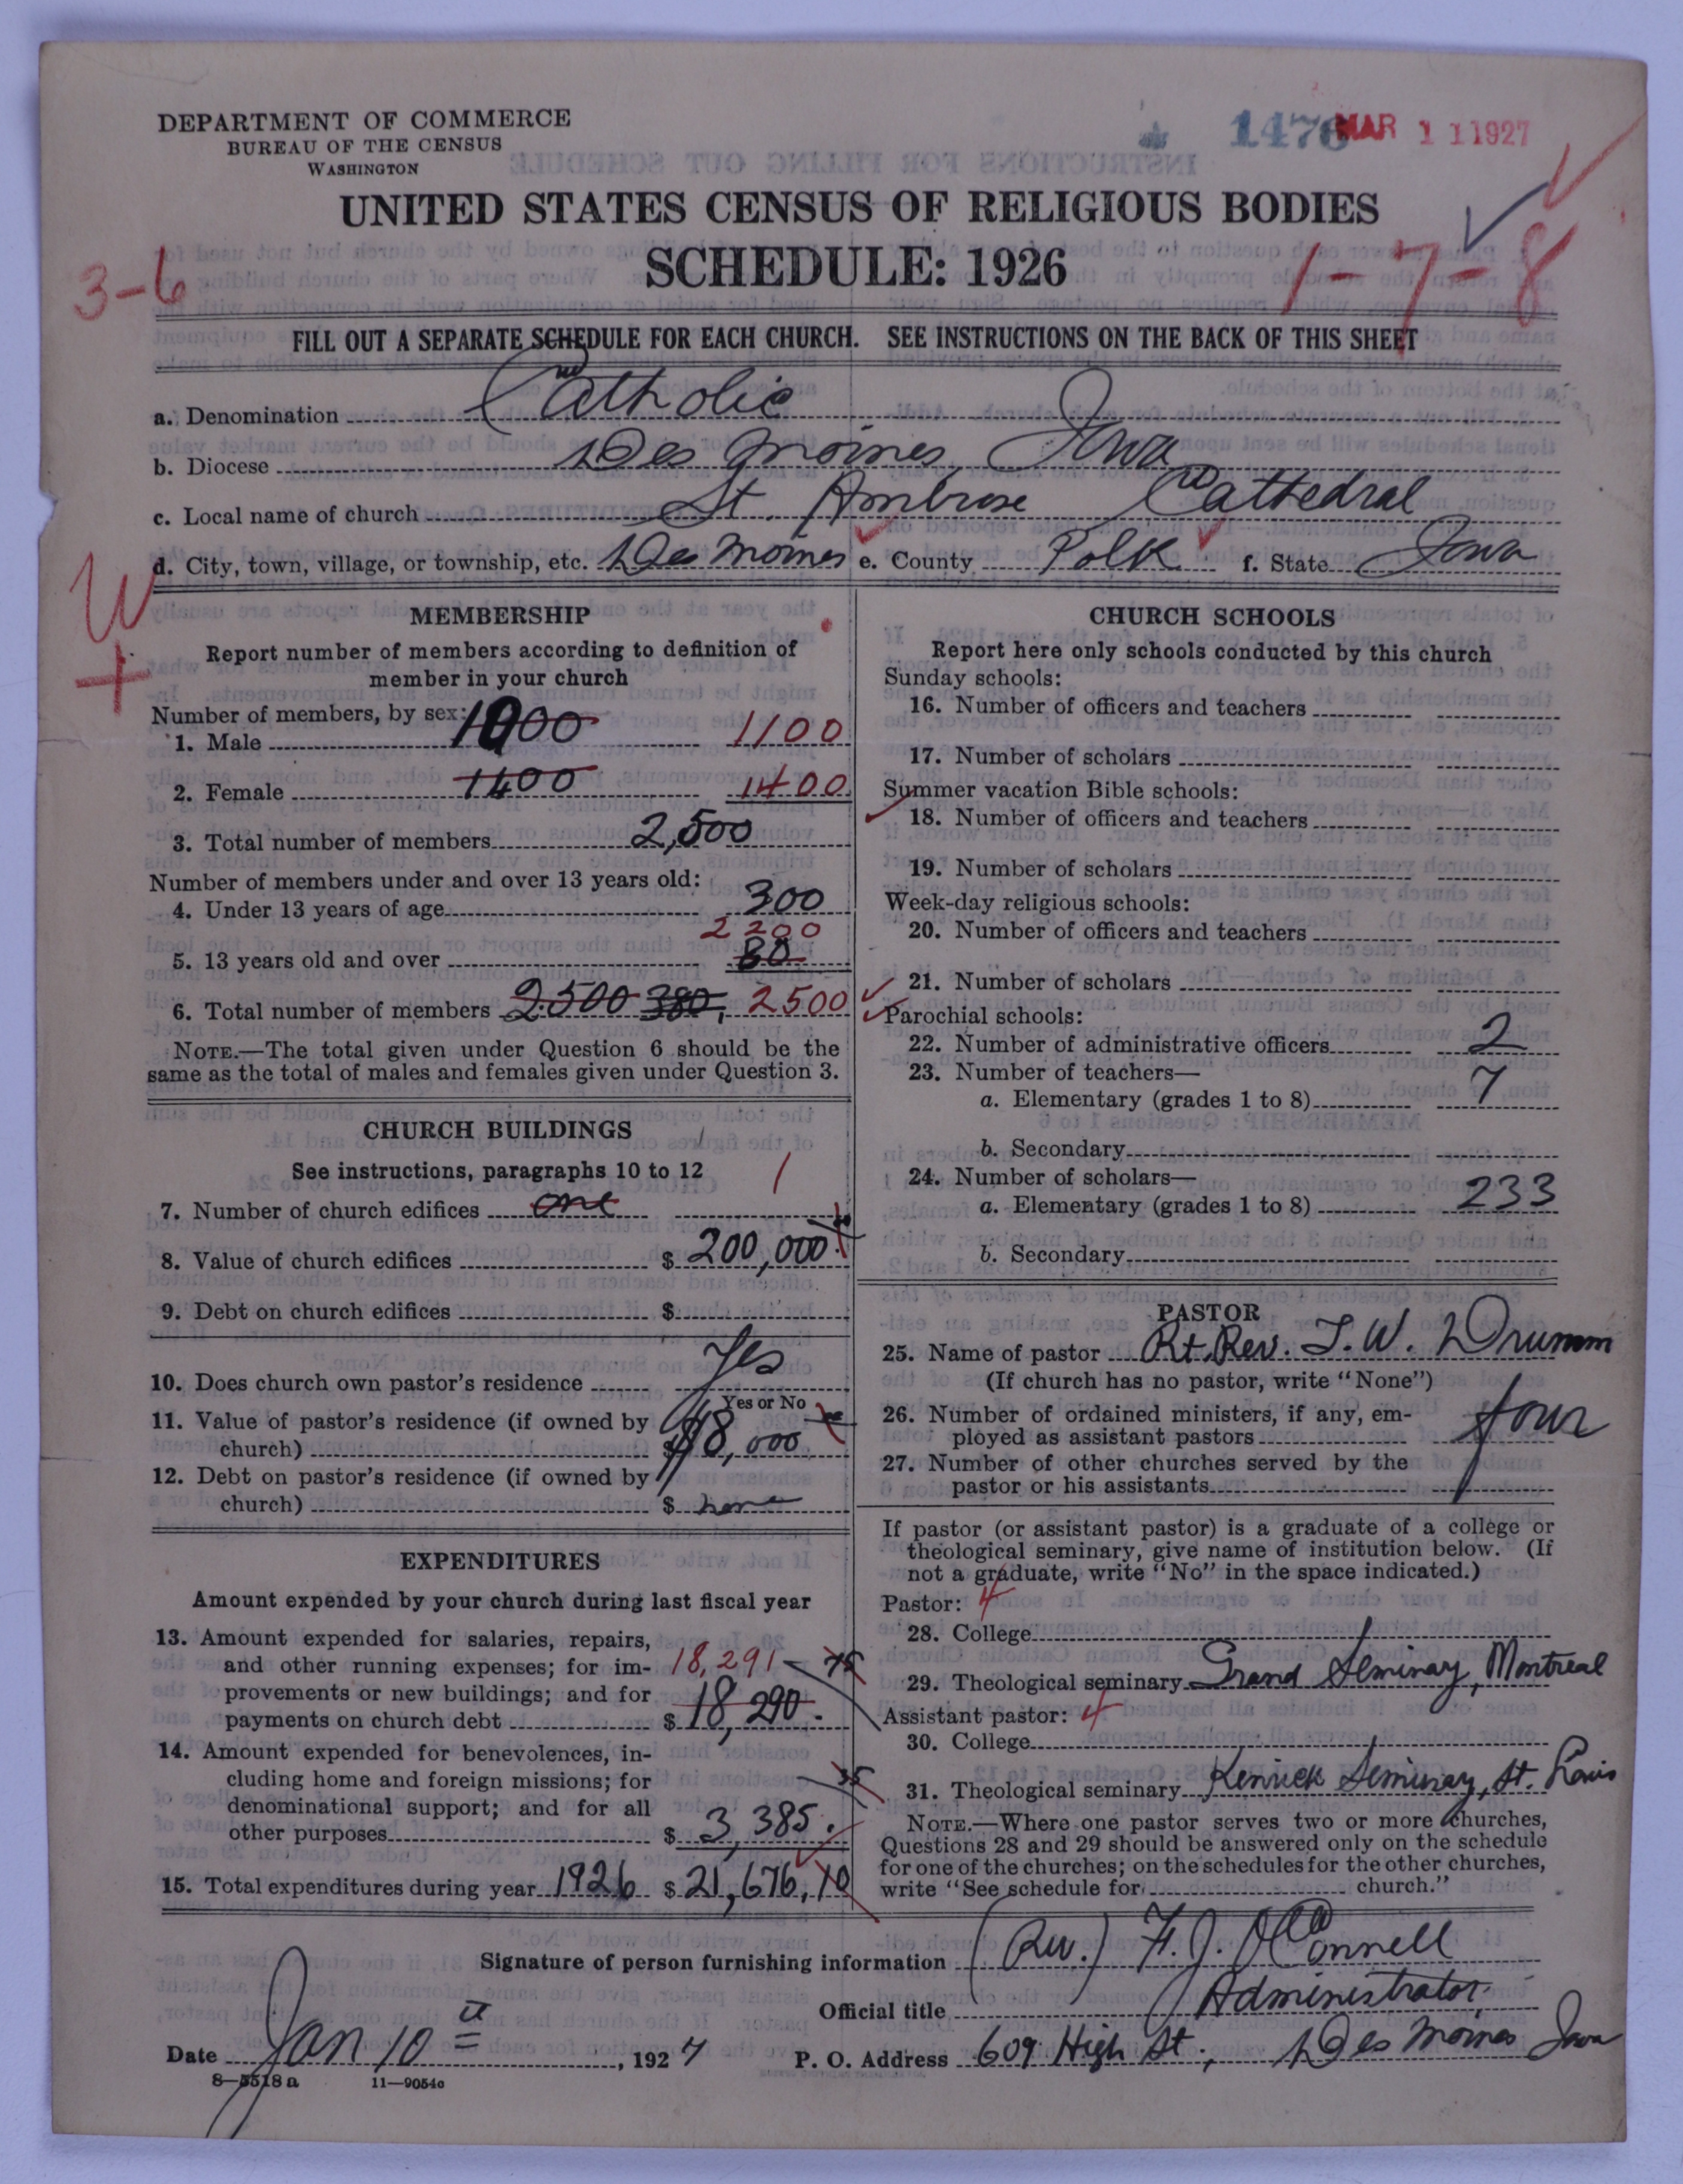 DEPARTMENT OF COMMERCE
BUREAU OF THE CENSUS
WASHINGTON
1476 MAR 11 1927
UNITED STATES CENSUS OF RELIGIOUS BODIES
SCHEDULE: 1926
3-6
1-7-8
FILL OUT A SEPARATE SCHEDULE FOR EACH CHURCH. SEE INSTRUCTIONS ON THE BACK OF THIS SHEET
a. Denomination Catholic
b. Diocese Des Moines, Iowa
c. Local name of church St. Ambrose Cathedral
d. City, town, village, or township, etc. Des Moines e. County Polk f. State Iowa
W
+
MEMBERSHIP
Report number of members according to definition of
member in your church
Number of members, by sex:
1. Male 1000 1100
2. Female 1400 1400
3. Total number of members 2,500
Number of members under and over 13 years old:
4. Under 13 years of age 300
2200
5. 13 years old and over 80
6. Total number of members 2500 380, 2500
NOTE.—The total given under Question 6 should be the
same as the total of males and females given under Question 3.
CHURCH BUILDINGS
See instructions, paragraphs 10 to 12
7. Number of church edifices one 1
8. Value of church edifices $ 200,000.
9. Debt on church edifices $
10. Does church own pastor's residence Yes
Yes or No
11. Value of pastor's residence (if owned by
church) $ 18,000
12. Debt on pastor's residence (if owned by
church) $ none
EXPENDITURES
Amount expended by your church during last fiscal year
13. Amount expended for salaries, repairs,
and other running expenses; for im- 18,291 75
provements or new buildings; and for
payments on church debt $ 18,290.
14. Amount expended for benevolences, in-
cluding home and foreign missions; for 35
denominational support; and for all
other purposes $ 3,385.
15. Total expenditures during year 1926 $ 21,676,10
CHURCH SCHOOLS
Report here only schools conducted by this church
Sunday schools:
16. Number of officers and teachers
17. Number of scholars
Summer vacation Bible schools:
18. Number of officers and teachers
19. Number of scholars
Week-day religious schools:
20. Number of officers and teachers
21. Number of scholars
Parochial schools:
22. Number of administrative officers 2
23. Number of teachers—
a. Elementary (grades 1 to 8) 7
b. Secondary
24. Number of scholars—
a. Elementary (grades 1 to 8) 233
b. Secondary
PASTOR
25. Name of pastor Rt. Rev. T. W. Drumm
(If church has no pastor, write "None")
26. Number of ordained ministers, if any, em-
ployed as assistant pastors four
27. Number of other churches served by the
pastor or his assistants
If pastor (or assistant pastor) is a graduate of a college or
theological seminary, give name of institution below. (If
not a graduate, write "No" in the space indicated.)
Pastor: 4
28. College
29. Theological seminary Grand Seminary, Montreal
Assistant pastor: 4
30. College
31. Theological seminary Kenrick Seminary, St. Louis
NOTE.—Where one pastor serves two or more churches,
Questions 28 and 29 should be answered only on the schedule
for one of the churches; on the schedules for the other churches,
write "See schedule for church."
Signature of person furnishing information (Rev.) F. J. O'Connell
Official title Administrator
Date Jan 10, 1927 P. O. Address 609 High St., Des Moines Iowa
8—5518a 11—9054c